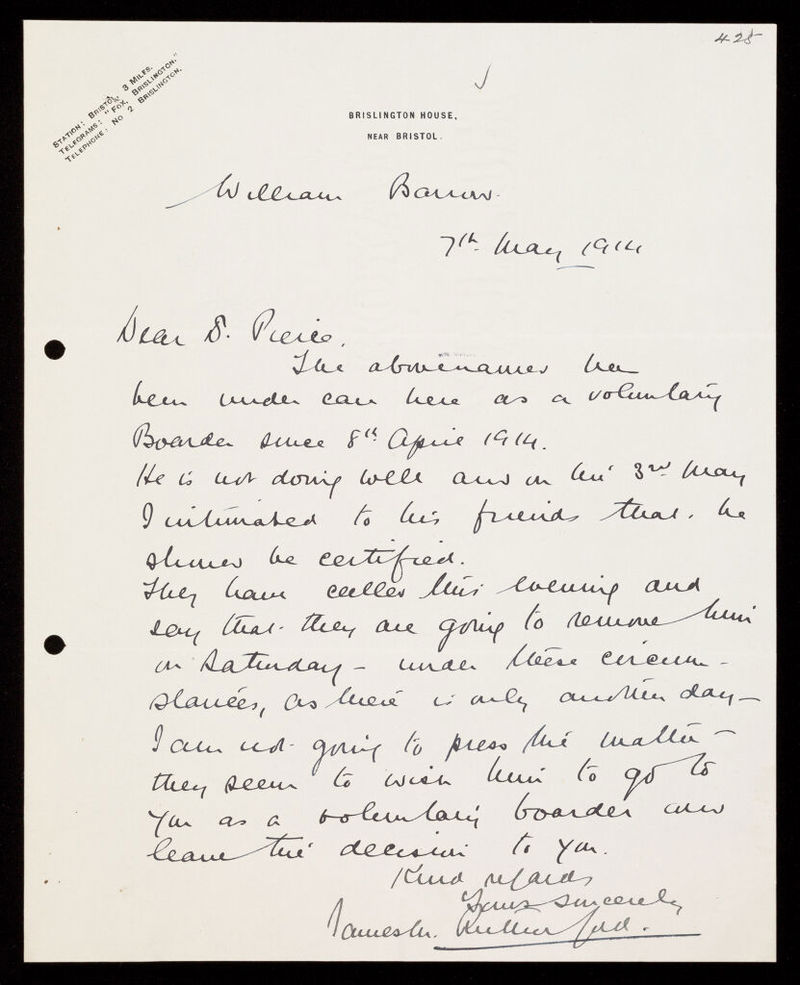 425
STATION: BRISTOL, 3 MILES.
TELEGRAMS: "FOX, BRISLINGTON."
TELEPHONE: No 2 BRISLINGTON.
BRISLINGTON HOUSE,
NEAR BRISTOL.
William Barrow.
7th May 1914
Dear Dr. Pierce,
The abovenamed has
been under care here as a voluntary
Boarder since 8th April 1914.
He is not doing well and on the 3rd May
I intimated to his friends that he
should be certified.
They have called this evening and
say that they are going to remove him
on Saturday – under these circum-
stances, as there is only another day –
I am not going to press the matter –
they seem to wish him to go to
you as a voluntary boarder and
leave the decision to you.
Kind regards
Yours sincerely
James M. Rutherford.